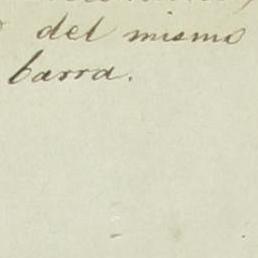 del mismo
barra.